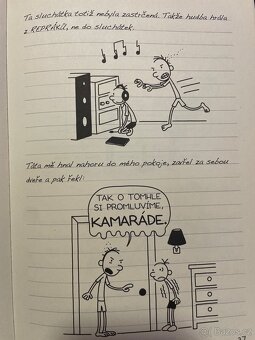 Ta sluchátka totiž nebyla zastrčená. Takže hudba hrála
z REPRÁKŮ, ne do sluchátek.
Táta mě hnal nahoru do mého pokoje, zavřel za sebou
dveře a pak řekl:
TAK O TOMHLE
SI PROMLUVÍME,
KAMARÁDE.
37